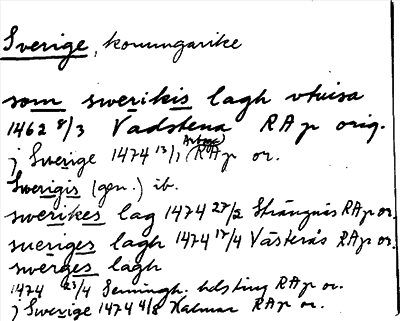 Sverige, konungarike
som swerikis lagh vtuisa
1462 8/3 Vadstena RAp orig.
j Swerige 1474 13/1 Arboga RAp or.
Swerigis (gen.) ib.
swerikes lag 1474 27/2 Strängnäs RAp or.
sueriges lagh 1474 17/4 Västerås RAp or.
swerges lagh
1474 23/4 hdsting RAp or.
j Swerige 1474 4/8 Kalmar RAp or.